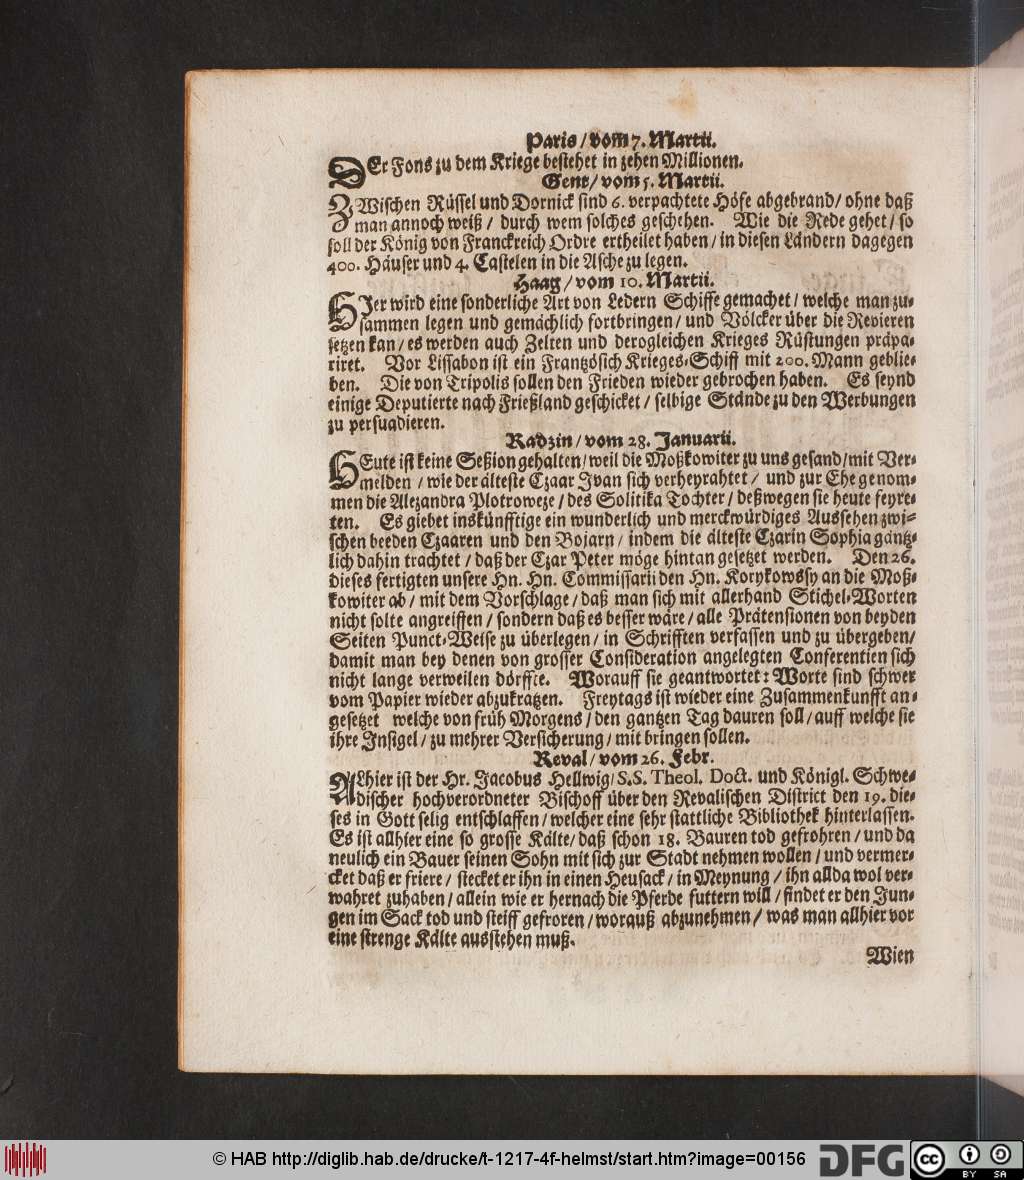 Paris / vom 7. Martii.
DEr Fons zu dem Kriege bestehet in zehen Millionen.
Gent / vom 5. Martii.
ZWischen Rüssel und Dornick sind 6. verpachtete Höfe abgebrand / ohne daß
man annoch weiß / durch wem solches geschehen. Wie die Rede gehet / so
soll der König von Franckreich Ordre ertheilet haben / in diesen Ländern dagegen
400. Häuser und 4. Castelen in die Asche zu legen.
Haag / vom 10. Martii.
HJer wird eine sonderliche Art von Ledern Schiffe gemachet / welche man zu-
sammen legen und gemächlich fortbringen / und Völcker über die Revieren
setzen kan / es werden auch Zelten und derogleichen Krieges Rüstungen präpa-
riret. Vor Lissabon ist ein Frantzösich Krieges-Schiff mit 200. Mann geblie-
ben. Die von Tripolis sollen den Frieden wieder gebrochen haben. Es seynd
einige Deputierte nach Frießland geschicket / selbige Stände zu den Werbungen
zu persuadieren.
Radzin / vom 28. Januarii.
HEute ist keine Seßion gehalten / weil die Moßkowiter zu uns gesand / mit Ver-
melden / wie der älteste Czaar Jvan sich verheyrahtet / und zur Ehe genom-
men die Alexandra Plotroweze / des Solitika Tochter / deßwegen sie heute feyre-
ten. Es giebet inskünfftige ein wunderlich und merckwürdiges Aussehen zwi-
schen beeden Czaaren und den Bojarn / indem die älteste Czarin Sophia gäntz-
lich dahin trachtet / daß der Czar Peter möge hintan gesetzet werden. Den 26.
dieses fertigten unsere Hn. Hn. Commissarii den Hn. Korykowssy an die Moß-
kowiter ab / mit dem Vorschlage / daß man sich mit allerhand Stichel-Worten
nicht solte angreiffen / sondern daß es besser wäre / alle Prätensionen von beyden
Seiten Punct-Weise zu überlegen / in Schrifften verfassen und zu übergeben /
damit man bey denen von grosser Consideration angelegten Conferentien sich
nicht lange verweilen dörffte. Worauff sie geantwortet: Worte sind schwer
vom Papier wieder abzukratzen. Freytags ist wieder eine Zusammenkunfft an-
gesetzet welche von früh Morgens / den gantzen Tag dauren soll / auff welche sie
ihre Insigel / zu mehrer Versicherung / mit bringen sollen.
Reval / vom 26. Febr.
ALhier ist der Hr. Jacobus Hellwig / S.S. Theol. Doct. und Königl. Schwe-
discher hochverordneter Bischoff über den Revalischen District den 19. die-
ses in Gott selig entschlaffen / welcher eine sehr stattliche Bibliothek hinterlassen.
Es ist allhier eine so grosse Kälte / daß schon 18. Bauren tod gefrohren / und da
neulich ein Bauer seinen Sohn mit sich zur Stadt nehmen wollen / und vermer-
cket daß er friere / stecket er ihn in einen Heusack / in Meynung / ihn allda wol ver-
wahret zuhaben / allein wie er hernach die Pferde futtern will / findet er den Jun-
gen im Sack tod und steiff gefroren / worauß abzunehmen / was man allhier vor
eine strenge Kälte ausstehen muß.
Wien
© HAB http://diglib.hab.de/drucke/t-1217-4f-helmst/start.htm?image=00156
DFG
cc BY SA